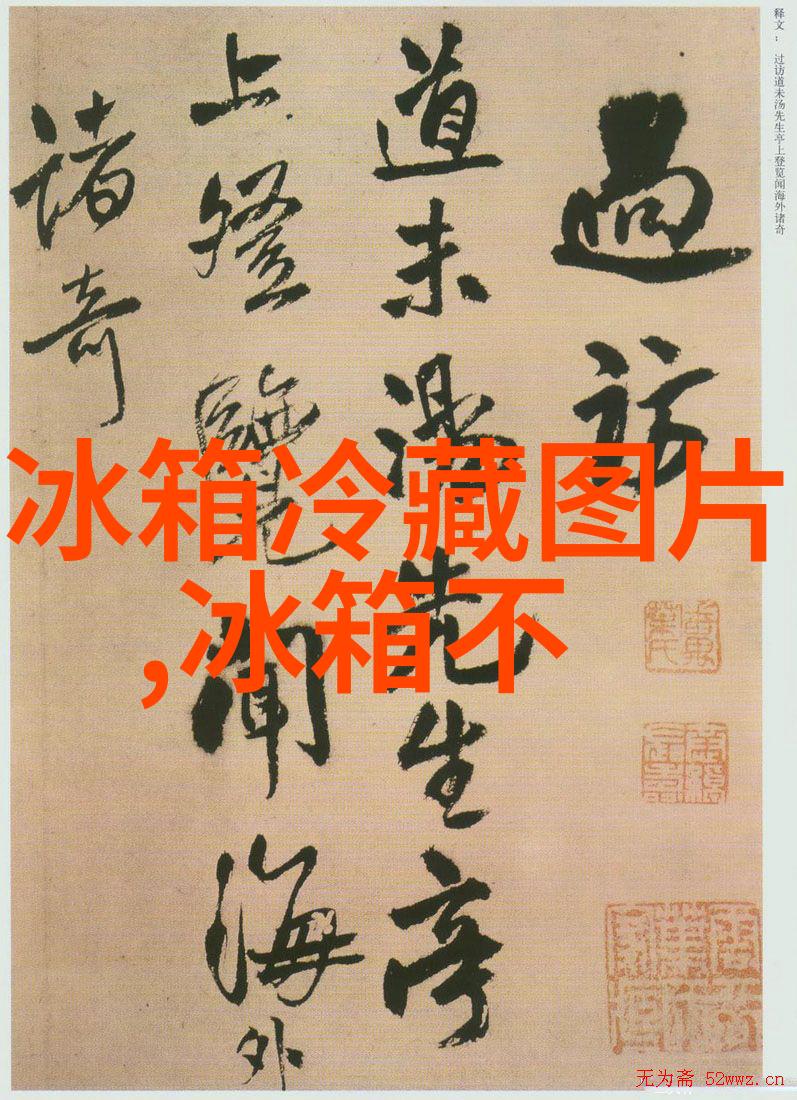 释文： 过访道未汤先生亭上登览闻海外诸奇
過訪
道未湯先生亭
上登覽聞海外
諸奇
冰箱冷藏图片
,冰箱不
无为斋 52wwz.cn